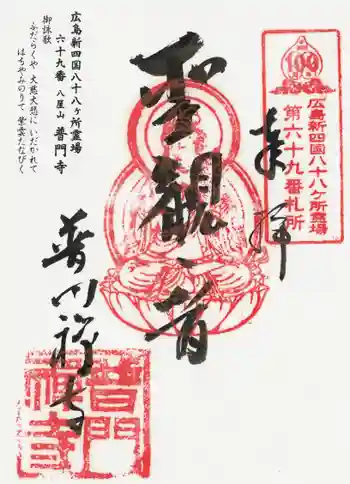 100
広島新四国八十八ヶ所霊場
第六十九番札所
奉拝
聖観音
普門禅寺
普門
禅寺
広島新四国八十八ヶ所霊場
六十九番 八屋山 普門寺
御詠歌
ふだらくや 大慈大悲に いだかれて
はちやみのりて 紫雲たなびく